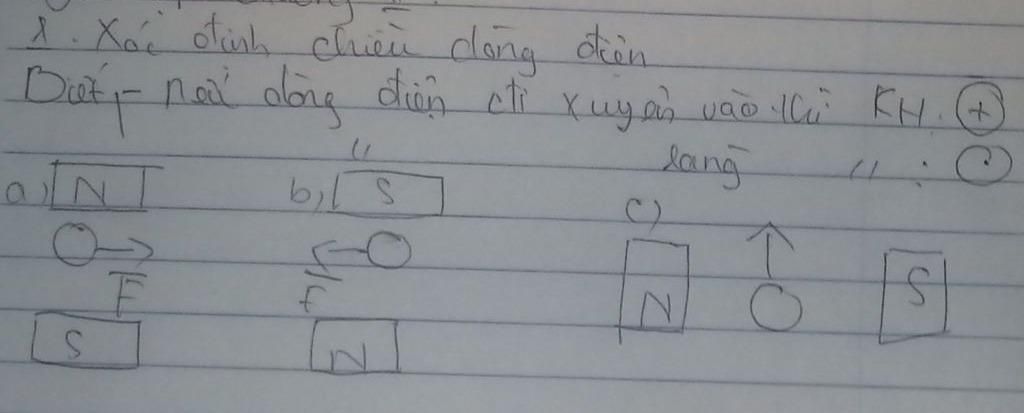 1. Xác định chiều dòng điện
Biết, - nếu dòng điện đi xuyên vào thì KH. (+)
" ra " : (.)
a) N b) S c)
F F N S
S N